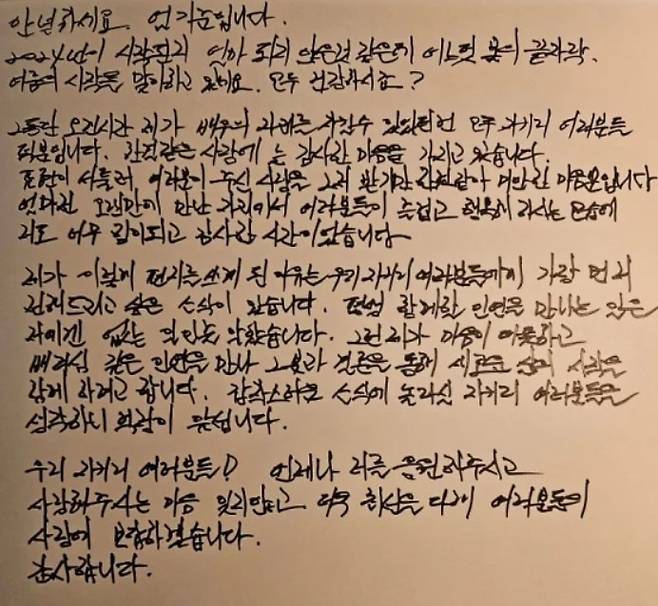 안녕하세요. 엄기준입니다.
2024년이 시작된지 얼마 되지 않은것 같은데 어느덧 봄의 끝자락.
여름의 시작을 맞이하고 있네요. 모두 건강하시죠?
그동안 오랜시간 제가 배우의 자리를 지킬수 있었던건 모두 자기지 여러분들
덕분입니다. 한결같은 사랑에 늘 감사한 마음을 가지고 있습니다.
표현이 서툴러 여러분이 주신 사랑을 그저 받기만 한것같아 미안한 마음뿐입니다
얼마전 오랜만에 만난 자리에서 여러분들이 즐겁고 행복해 하시는 모습에
저도 너무 힘이되고 감사한 시간이었습니다
제가 이렇게 편지를 쓰게 된 이유는 우리 자기지 여러분들에게 가장 먼저
전해드리고 싶은 소식이 있습니다. 평생 함께할 인연을 만나는 일은
저에겐 없는 일인줄 알았습니다. 그런 제가 마음이 따뜻하고
배려심 깊은 인연을 만나 그분과 결혼을 통해 새로운 삶의 시작을
함께 하려고 합니다. 갑작스러운 소식에 놀라실 자기지 여러분들을
생각하니 떨립니다.
우리 자기지 여러분들! 언제나 저를 응원해주시고
사랑해주시는 마음 잊지않고 더욱 최선을 다해 여러분들의
사랑에 보답하겠습니다.
감사합니다.